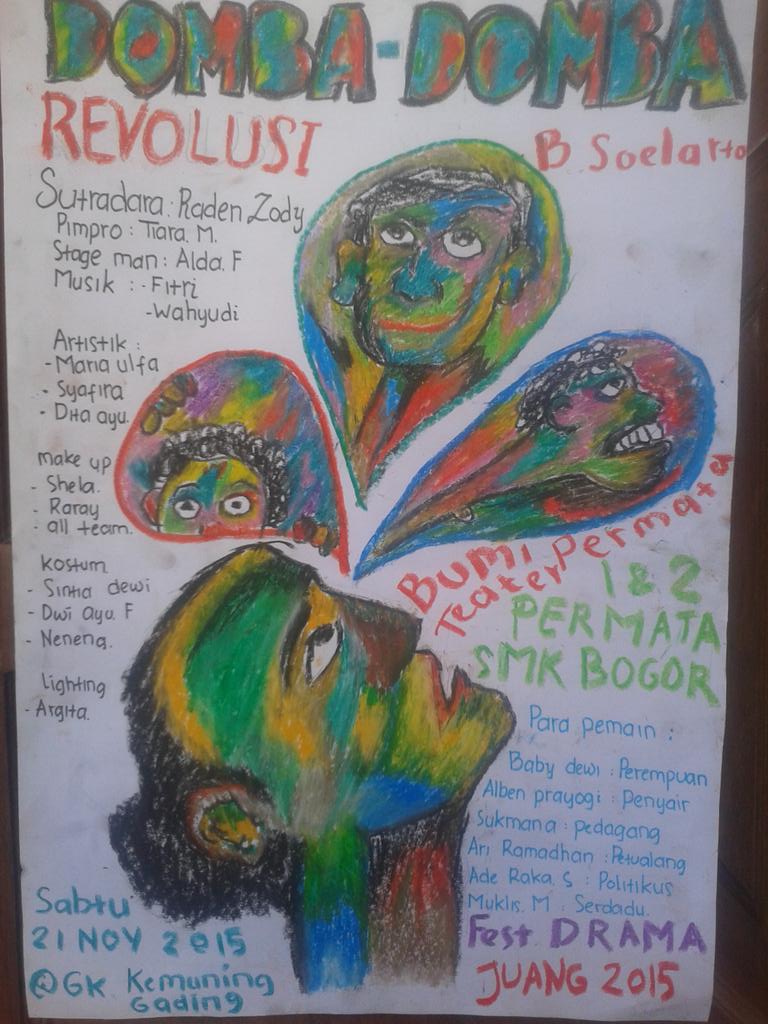 DOMBA-DOMBA
REVOLUSI
B Soelarto
Sutradara : Raden Zody
Pimpro : Tiara. M.
Stage man : Alda. F
Musik : - Fitri
-Wahyudi
Artistik :
- Maria ulfa
- Syafira
- Dita ayu.
make up
- Shela.
- Raray
- all team.
kostum
- Sintia dewi
- Dwi ayu. F
- Neneng.
lighting
- Argita.
Bumi Permata
Teater
1 & 2
PERMATA
SMK BOGOR
Para pemain :
Baby dewi : Perempuan
Alben prayogi : Penyair
Sukmana : pedagang
Ari Ramadhan : Petualang
Ade Raka. S : Politikus
Muklis. M : Serdadu.
Sabtu
21 NOV 2015
@GK Kemuning
Gading
Fest DRAMA
JUANG 2015